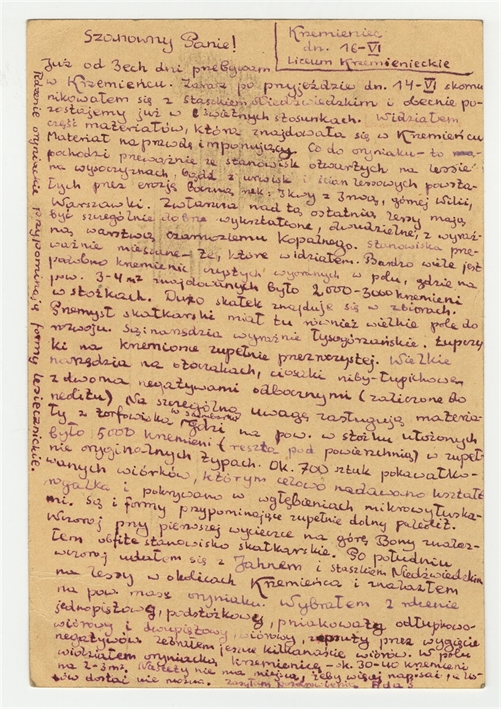 Szanowny Panie!
Krzemieniec
dn. 16-VI
Liceum Krzemienieckie
Już od 3ech dni przebywam
w Krzemieńcu. Zaraz po przyjeździe dn. 14-VI skomu
nikowałem się z Staszkiem Niedźwiedzkim i obecnie po-
zostajemy już w świetnych stosunkach. Widziałem
część materiałów, która znajdowała się w Krzemieńcu
Materiał naprawdę imponujący. Co do oryniaku - to
pochodzi przeważnie ze stanowisk otwartych na lessie
na wysoczyznach, bądź z urwisk i ścian lessowych powsta-
łych przez erozję
Warszawki. Zwłaszcza nad tą ostatnią lessy mają
być szczególnie dobrze wykształcone, dwudzielne, z wyraź-
ną warstwą czarnoziemu kopalnego. Stanowiska prze-
ważnie mieszane - te, które widziałem. Bardzo wiele jest
podobno krzemieni w polu, gdzie na
pow. 3-4 m² znajdowanych było 2000-3000 krzemieni
w stożkach. Dużo skałek znajduje się w zbiorach.
Przemysł skałkarski miał tu również wielkie pole do
rozwoju. Są narzędzia wyraźnie tysogórzańskie. Łupczy
ki na krzemione zupełnie przezroczystej. Wielkie
narzędzia na otoczakach, ciosaki niby-łupichowe
z dwoma negatywami odbocznymi (zaliczone do
neolitu) Na szczególną uwagę zasługują materia-
ły z torfowiska gdzie na pow. w stożku ułożonych
było 5000 krzemieni (reszta pod powierzchnią) w zupeł-
nie oryginalnych typach. Ok. 700 sztuk pokawałko-
wanych wiórków, którym celowo nadawano kształt
rogalka i pokrywano w wgłębieniach mikrowyłuska-
mi. Są i formy przypominające zupełnie dolny paleolit.
Wczoraj przy pierwszej wycieczce na górę Bony znalaz-
łem obfite stanowisko skałkarskie. Po południu
wczoraj udałem się z Jahnem i Staszkiem Niedźwiedzkim
na lessy w okolicach Krzemieńca i znalazłem
na pow. masę oryniaku. Wybrałem z rdzenie
jednopiętową, podstożkową, pniakowatą odłupkowo-
wiórową i dwupiętową, wiórową, zepsutą przez wygięcie
negatywów. Zebrałem jeszcze kilkanaście wiórów. W polu
widziałem oryniacką krzemienicę - ok. 30-40 krzemieni
na 2-3 m². Niestety nie ma miejsca, żeby więcej napisać, a
dostać nie można.
Rdzenie oryniackie przypominają formy lesiecznickie.